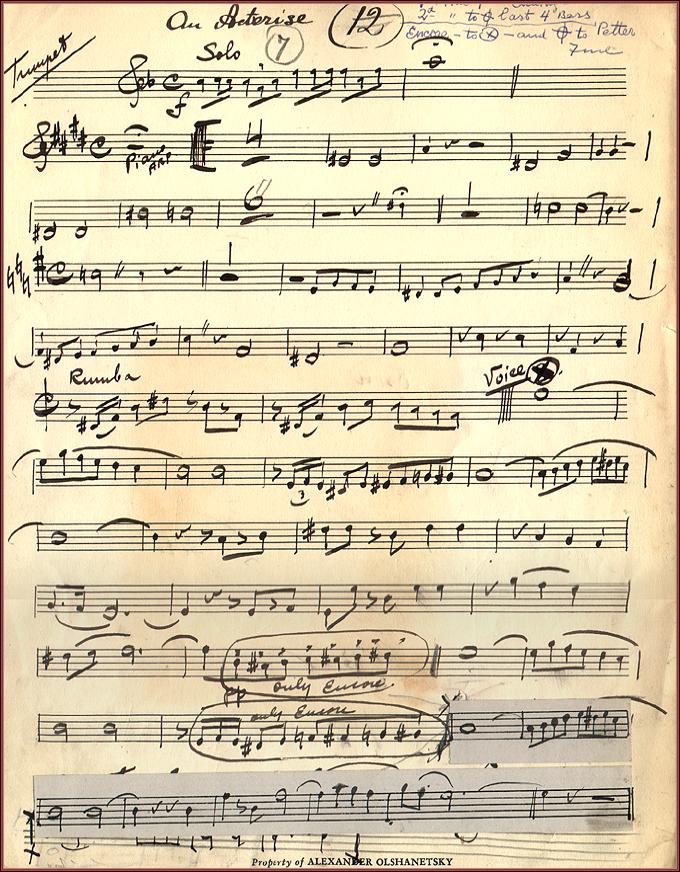 An Acterise
12
2d " to last 4 Bars
Encore - to X - and to Petter
Fine
Trumpet
Solo
7
f
Piano
ARP
4
6
Rumba
Voice
3
only Encore
pp
only Encore
Property of ALEXANDER OLSHANETSKY